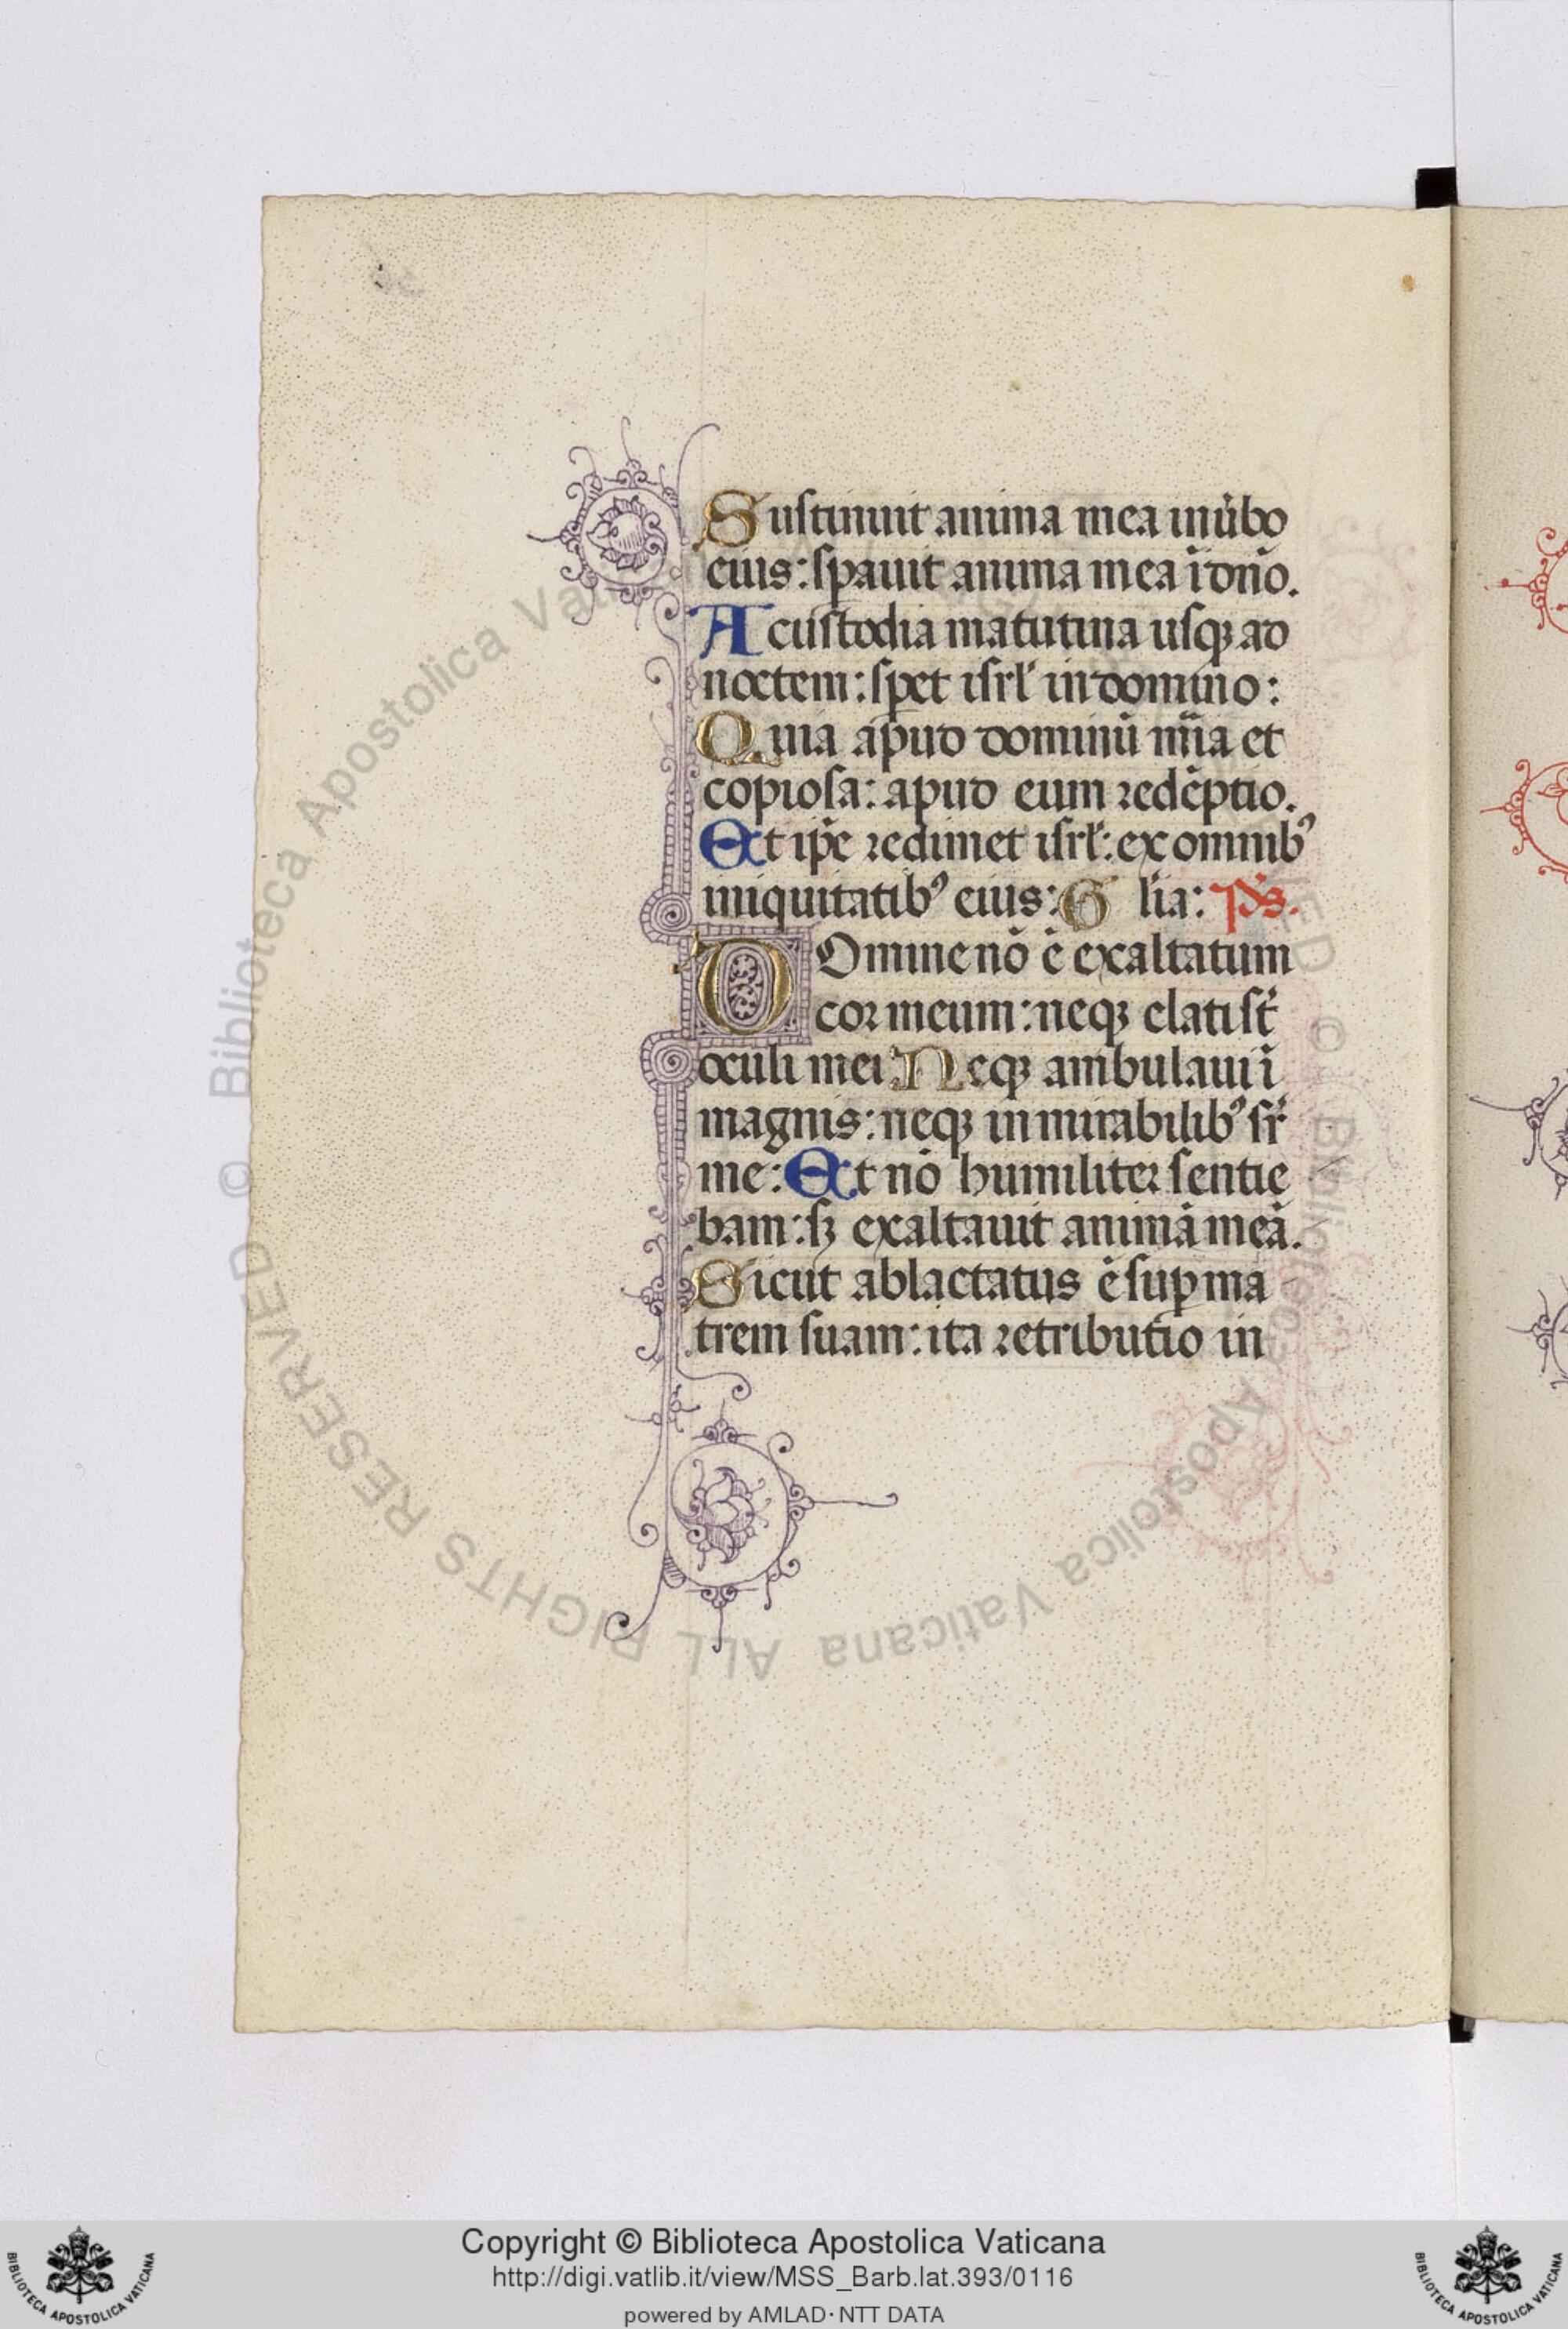 Sustinuit anima mea inu̾bo
eius: spauit anima mea ī dn̄o.
A custodia matutina usqꝫ ad
noctem: spet isrl̾ in domino:
Quia apud dominū mīa et
copiosa: apud eum redēptio.
Et ip̄e redimet isrl̾: ex omnibꝰ
iniquitatibꝰ eius: G l̾ia: Ps.
DOmine nō ē exaltatum
cor meum: neqꝫ elati st̄
oculi mei Neqꝫ ambulaui ī
magnis: neqꝫ in mirabilibꝰ sr̄
me: Et nō humiliter sentie
bam: sꝫ exaltauit animā meā.
Sicut ablactatus ē suꝑ ma
trem suam: ita retributio in
© Biblioteca Apostolica Vaticana ALL RIGHTS RESERVED
Copyright © Biblioteca Apostolica Vaticana
http://digi.vatlib.it/view/MSS_Barb.lat.393/0116
powered by AMLAD·NTT DATA
BIBLIOTECA APOSTOLICA VATICANA
BIBLIOTECA APOSTOLICA VATICANA